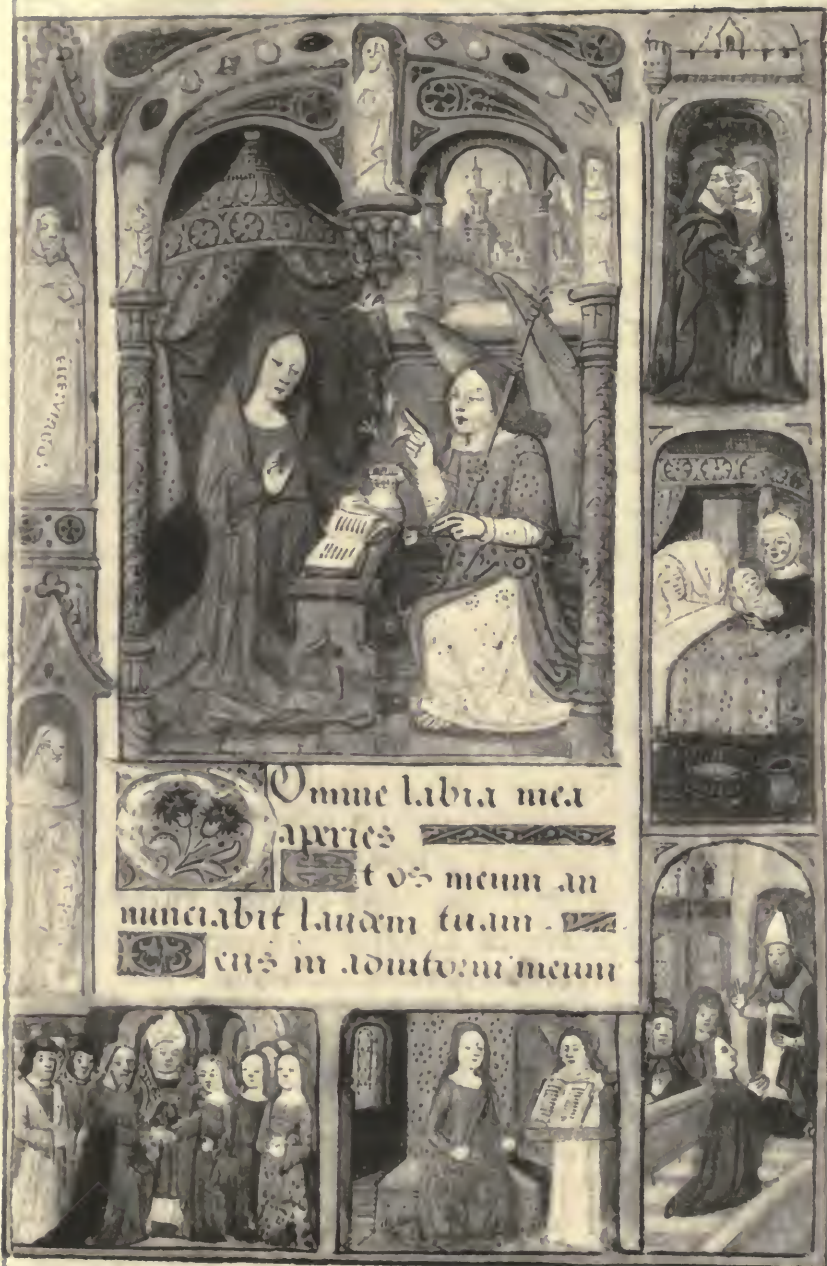 ECCE: VIRGO:
Domine labia mea
aperies
Et os meum an
nunciabit laudem tuam.
Deus in adiutoriu meum